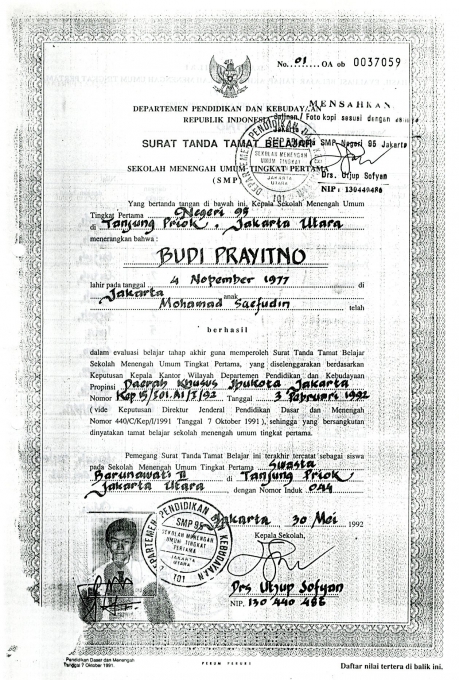 No. 01 OA ob 0037059
MENSAHKAN
DEPARTEMEN PENDIDIKAN DAN KEBUDAYAAN
REPUBLIK INDONESIA
Salinan / Foto kopi sesuai dengan
Jakarta
SURAT TANDA TAMAT BELAJAR
SMP Negeri 95 Jakarta
SEKOLAH MENENGAH UMUM TINGKAT PERTAMA
Drs. Utjup Sofyan
(SMP)
NIP : 130440486
DEPARTEMEN PENDIDIKAN
SEKOLAH MENENGAH
UMUM TINGKAT
JAKARTA
UTARA
101
Yang bertanda tangan di bawah ini, Kepala Sekolah Menengah Umum
Tingkat Pertama Negeri 95
di Tanjung Priok, Jakarta Utara
menerangkan bahwa :
BUDI PRAYITNO
lahir pada tanggal 4 Nopember 1977 di
Jakarta anak
Mohamad Saefudin telah
berhasil
dalam evaluasi belajar tahap akhir guna memperoleh Surat Tanda Tamat Belajar
Sekolah Menengah Umum Tingkat Pertama, yang diselenggarakan berdasarkan
Keputusan Kepala Kantor Wilayah Departemen Pendidikan dan Kebudayaan
Propinsi Daerah Khusus Ibukota Jakarta
Nomor Kep 15/I01.A1/I/92 Tanggal 3 Pebruari 1992
(vide Keputusan Direktur Jenderal Pendidikan Dasar dan Menengah
Nomor 440/C/Kep/I/1991 Tanggal 7 Oktober 1991), sehingga yang bersangkutan
dinyatakan tamat belajar sekolah menengah umum tingkat pertama.
Pemegang Surat Tanda Tamat Belajar ini terakhir tercatat sebagai siswa
pada Sekolah Menengah Umum Tingkat Pertama Swasta
Barunawati II di Tanjung Priok
Jakarta Utara dengan Nomor Induk 044
Jakarta 30 Mei 1992
Kepala Sekolah,
DEPARTEMEN PENDIDIKAN DAN KEBUDAYAAN
SMP 95
SEKOLAH MENENGAH
UMUM TINGKAT
PERTAMA
JAKARTA
UTARA
101
Drs Utjup Sofyan
NIP. 130 440 486
Pendidikan Dasar dan Menengah
Tanggal 7 Oktober 1991.
PERUM PERURI
Daftar nilai tertera di balik ini.